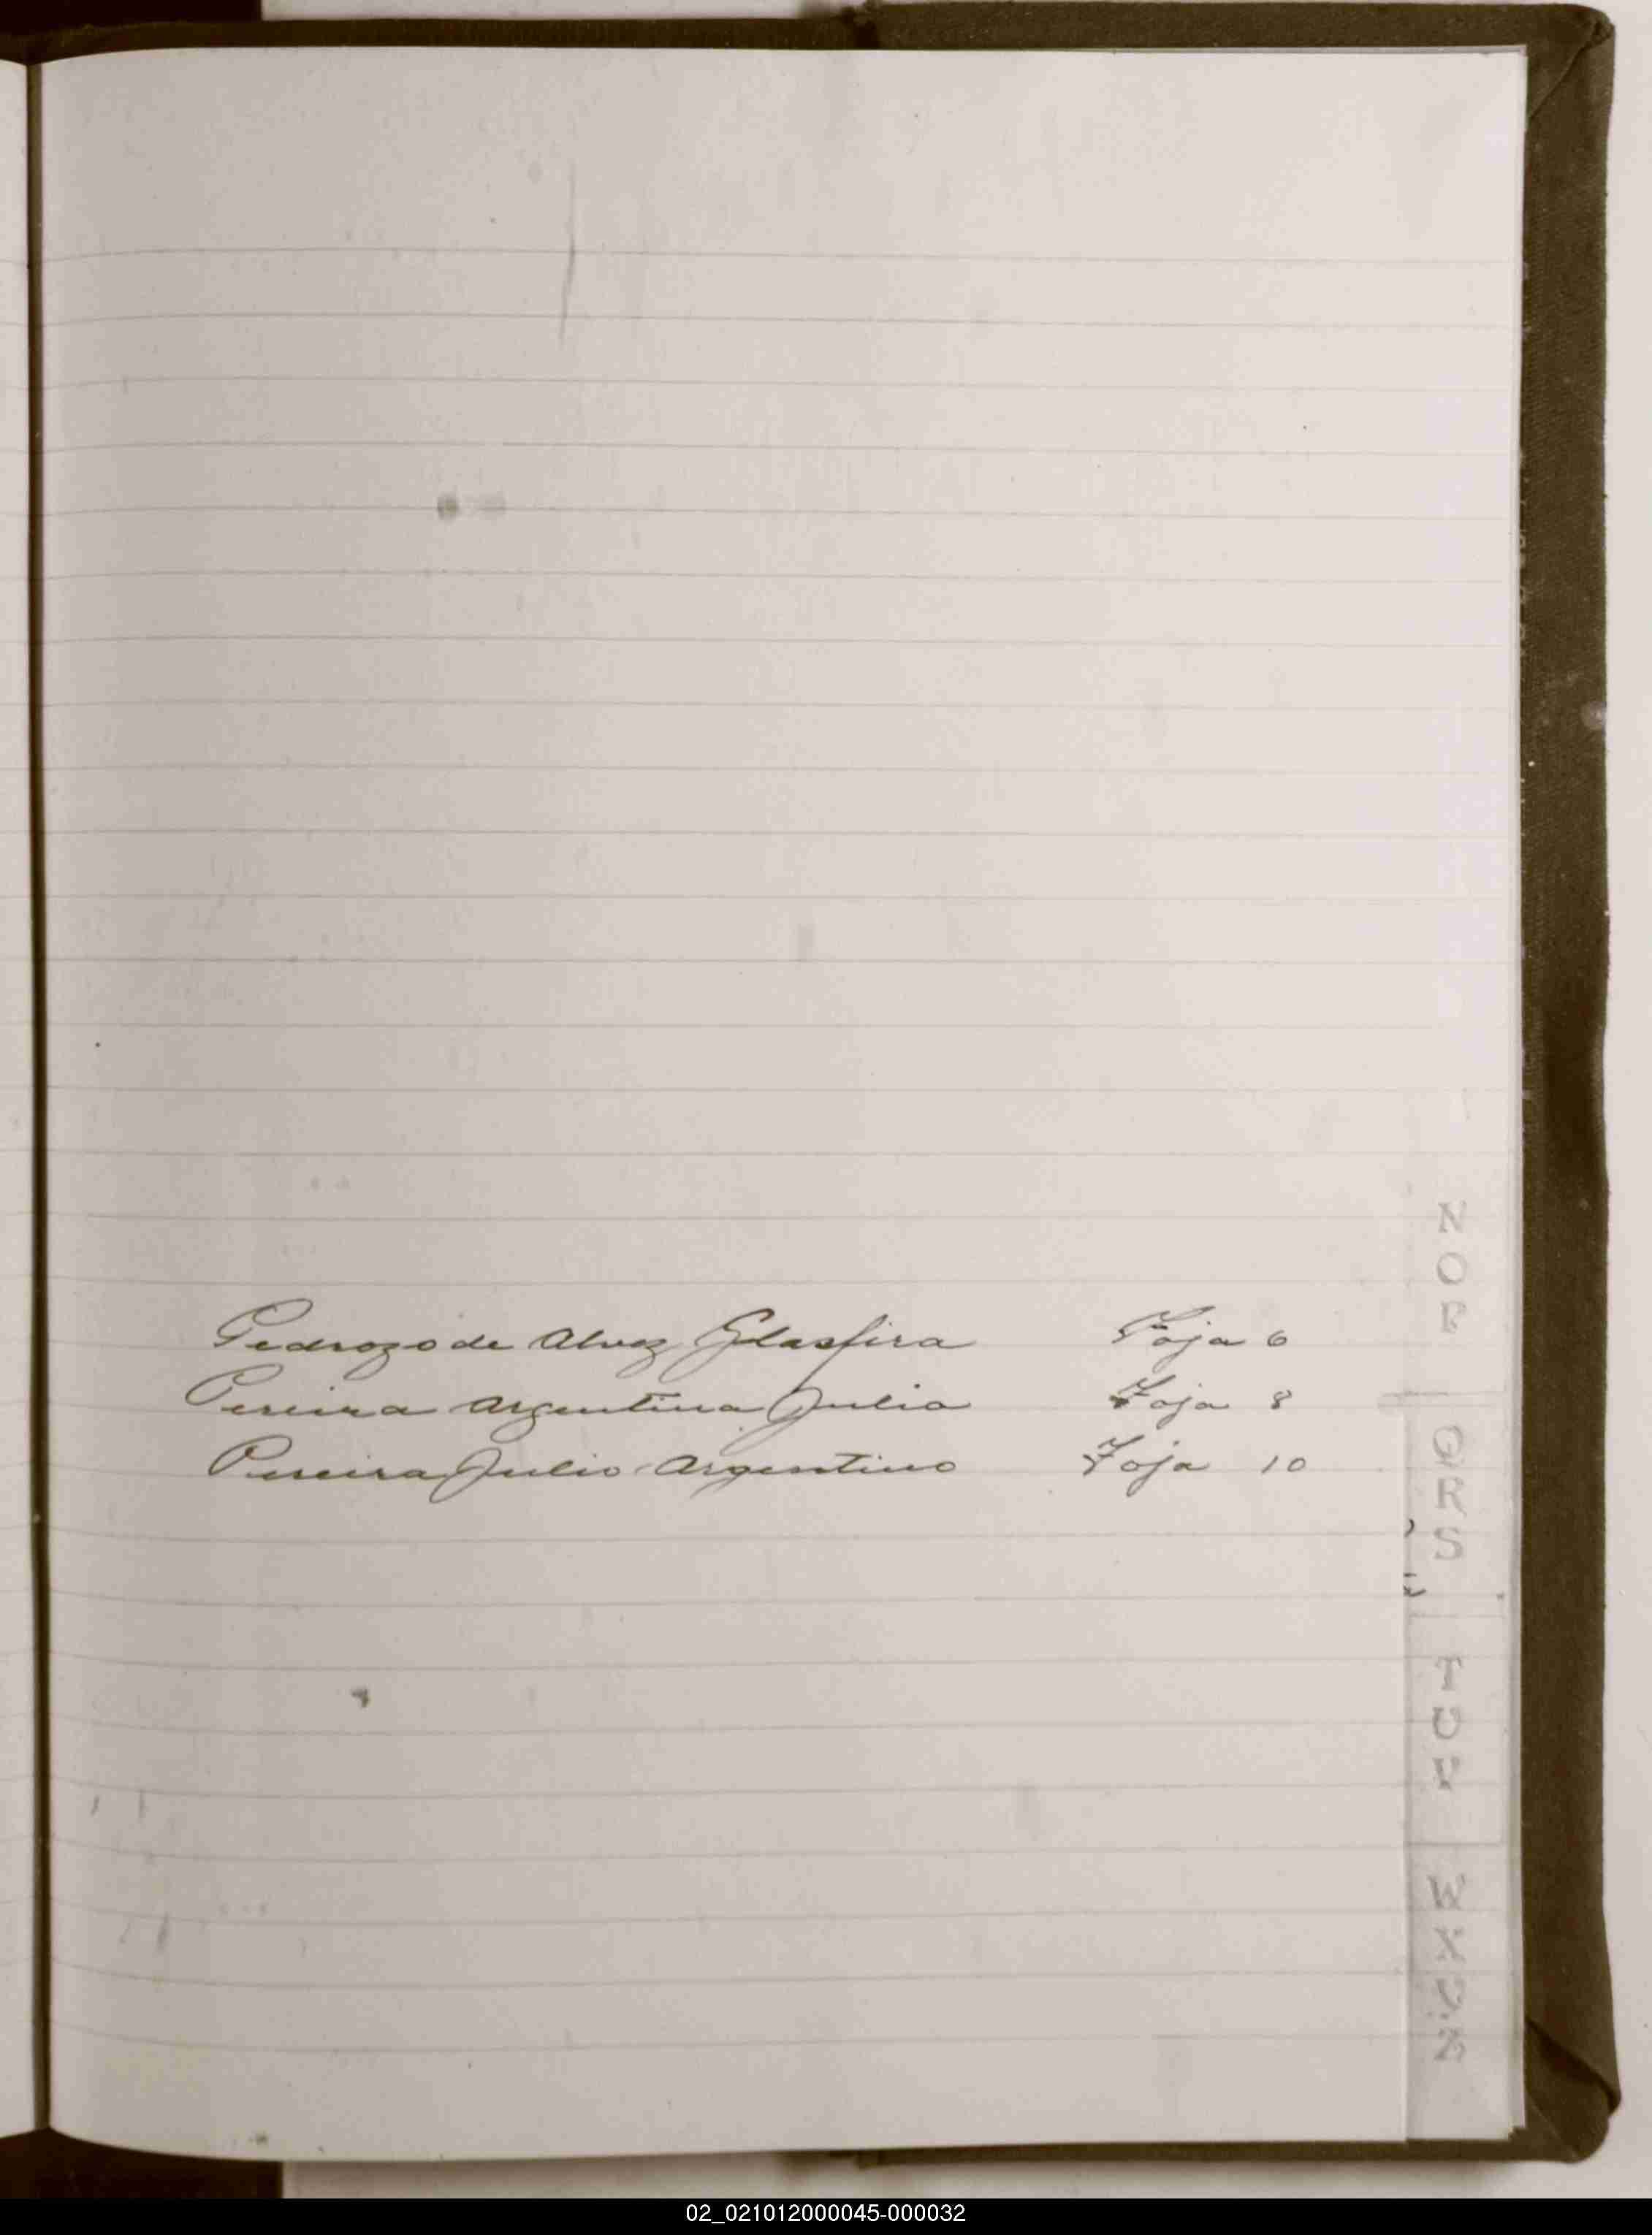 Pedrozo de Alvez Glasfira Foja 6
Pereira Argentina Julia Foja 8
Pereira Julio Argentino Foja 10
N
O
P
Q
R
S
T
U
V
W
X
Y
Z
02_021012000045-000032